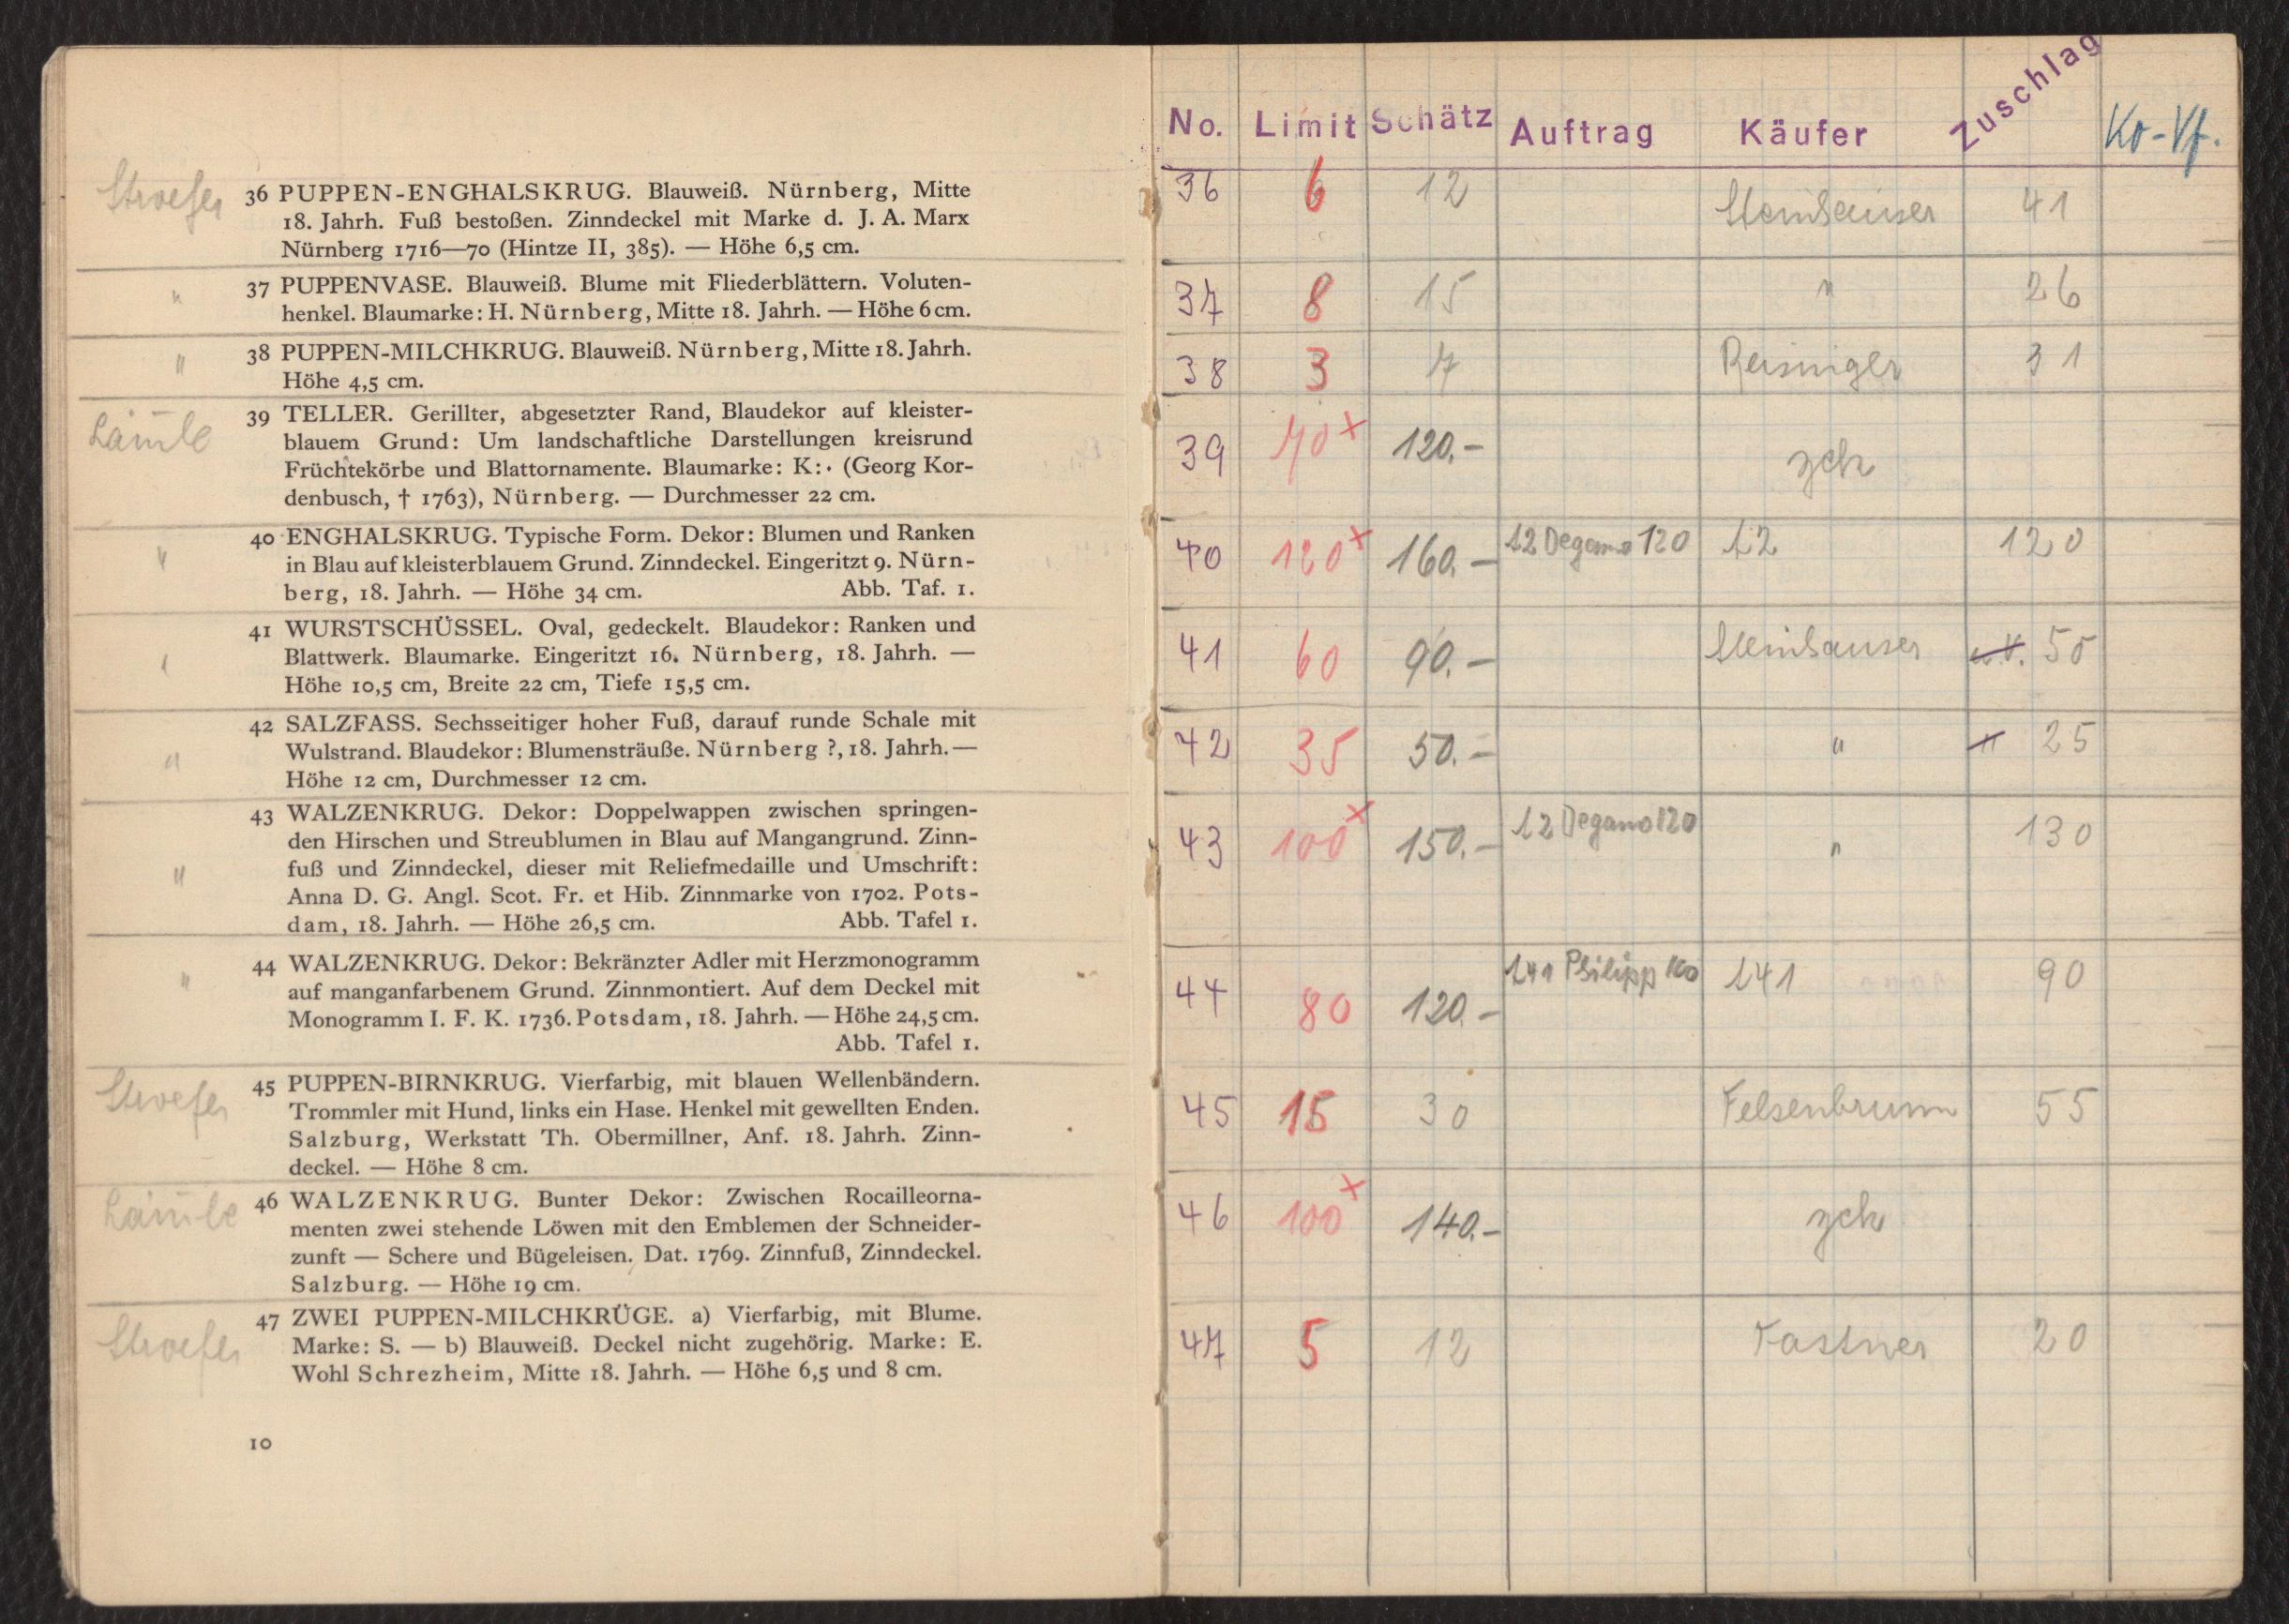 Stroefer
36 PUPPEN-ENGHALSKRUG. Blauweiß. Nürnberg, Mitte
18. Jahrh. Fuß bestoßen. Zinndeckel mit Marke d. J. A. Marx
Nürnberg 1716—70 (Hintze II, 385). — Höhe 6,5 cm.
" 37 PUPPENVASE. Blauweiß. Blume mit Fliederblättern. Voluten-
henkel. Blaumarke: H. Nürnberg, Mitte 18. Jahrh. — Höhe 6 cm.
" 38 PUPPEN-MILCHKRUG. Blauweiß. Nürnberg, Mitte 18. Jahrh.
Höhe 4,5 cm.
Lämle
39 TELLER. Gerillter, abgesetzter Rand, Blaudekor auf kleister-
blauem Grund: Um landschaftliche Darstellungen kreisrund
Früchtekörbe und Blattornamente. Blaumarke: K:· (Georg Kor-
denbusch, † 1763), Nürnberg. — Durchmesser 22 cm.
" 40 ENGHALSKRUG. Typische Form. Dekor: Blumen und Ranken
in Blau auf kleisterblauem Grund. Zinndeckel. Eingeritzt 9. Nürn-
berg, 18. Jahrh. — Höhe 34 cm. Abb. Taf. 1.
41 WURSTSCHÜSSEL. Oval, gedeckelt. Blaudekor: Ranken und
Blattwerk. Blaumarke. Eingeritzt 16. Nürnberg, 18. Jahrh. —
Höhe 10,5 cm, Breite 22 cm, Tiefe 15,5 cm.
" 42 SALZFASS. Sechsseitiger hoher Fuß, darauf runde Schale mit
Wulstrand. Blaudekor: Blumensträuße. Nürnberg ?, 18. Jahrh. —
Höhe 12 cm, Durchmesser 12 cm.
" 43 WALZENKRUG. Dekor: Doppelwappen zwischen springen-
den Hirschen und Streublumen in Blau auf Mangangrund. Zinn-
fuß und Zinndeckel, dieser mit Reliefmedaille und Umschrift:
Anna D. G. Angl. Scot. Fr. et Hib. Zinnmarke von 1702. Pots-
dam, 18. Jahrh. — Höhe 26,5 cm. Abb. Tafel 1.
" 44 WALZENKRUG. Dekor: Bekränzter Adler mit Herzmonogramm
auf manganfarbenem Grund. Zinnmontiert. Auf dem Deckel mit
Monogramm I. F. K. 1736. Potsdam, 18. Jahrh. — Höhe 24,5 cm.
Abb. Tafel 1.
Stroefer
45 PUPPEN-BIRNKRUG. Vierfarbig, mit blauen Wellenbändern.
Trommler mit Hund, links ein Hase. Henkel mit gewellten Enden.
Salzburg, Werkstatt Th. Obermillner, Anf. 18. Jahrh. Zinn-
deckel. — Höhe 8 cm.
Lämle
46 WALZENKRUG. Bunter Dekor: Zwischen Rocailleorna-
menten zwei stehende Löwen mit den Emblemen der Schneider-
zunft — Schere und Bügeleisen. Dat. 1769. Zinnfuß, Zinndeckel.
Salzburg. — Höhe 19 cm.
Stroefer
47 ZWEI PUPPEN-MILCHKRÜGE. a) Vierfarbig, mit Blume.
Marke: S. — b) Blauweiß. Deckel nicht zugehörig. Marke: E.
Wohl Schrezheim, Mitte 18. Jahrh. — Höhe 6,5 und 8 cm.
10
No. Limit Schätz Auftrag Käufer Zuschlag Ko-Vf.
36 6 12 Steinhauser 41
37 8 15 " 26
38 3 7 Reisinger 31
39 70 x 120.- zck
40 120 x 160.- 12 Degano 120 12 120
41 60 90.- Steinhauser 50
42 35 50.- " 25
43 100 x 150.- 12 Degano 120 " 130
44 80 120.- 141 Philipp 100 141 90
45 15 30 Felsenbrunn 55
46 100 x 140.- zck
47 5 12 Fastner 20